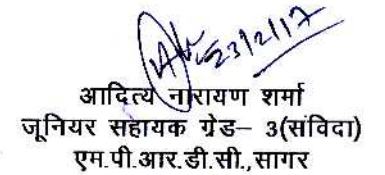 23/2/17
आदित्य नारायण शर्मा
जूनियर सहायक ग्रेड– 3(संविदा)
एम.पी.आर.डी.सी.,सागर